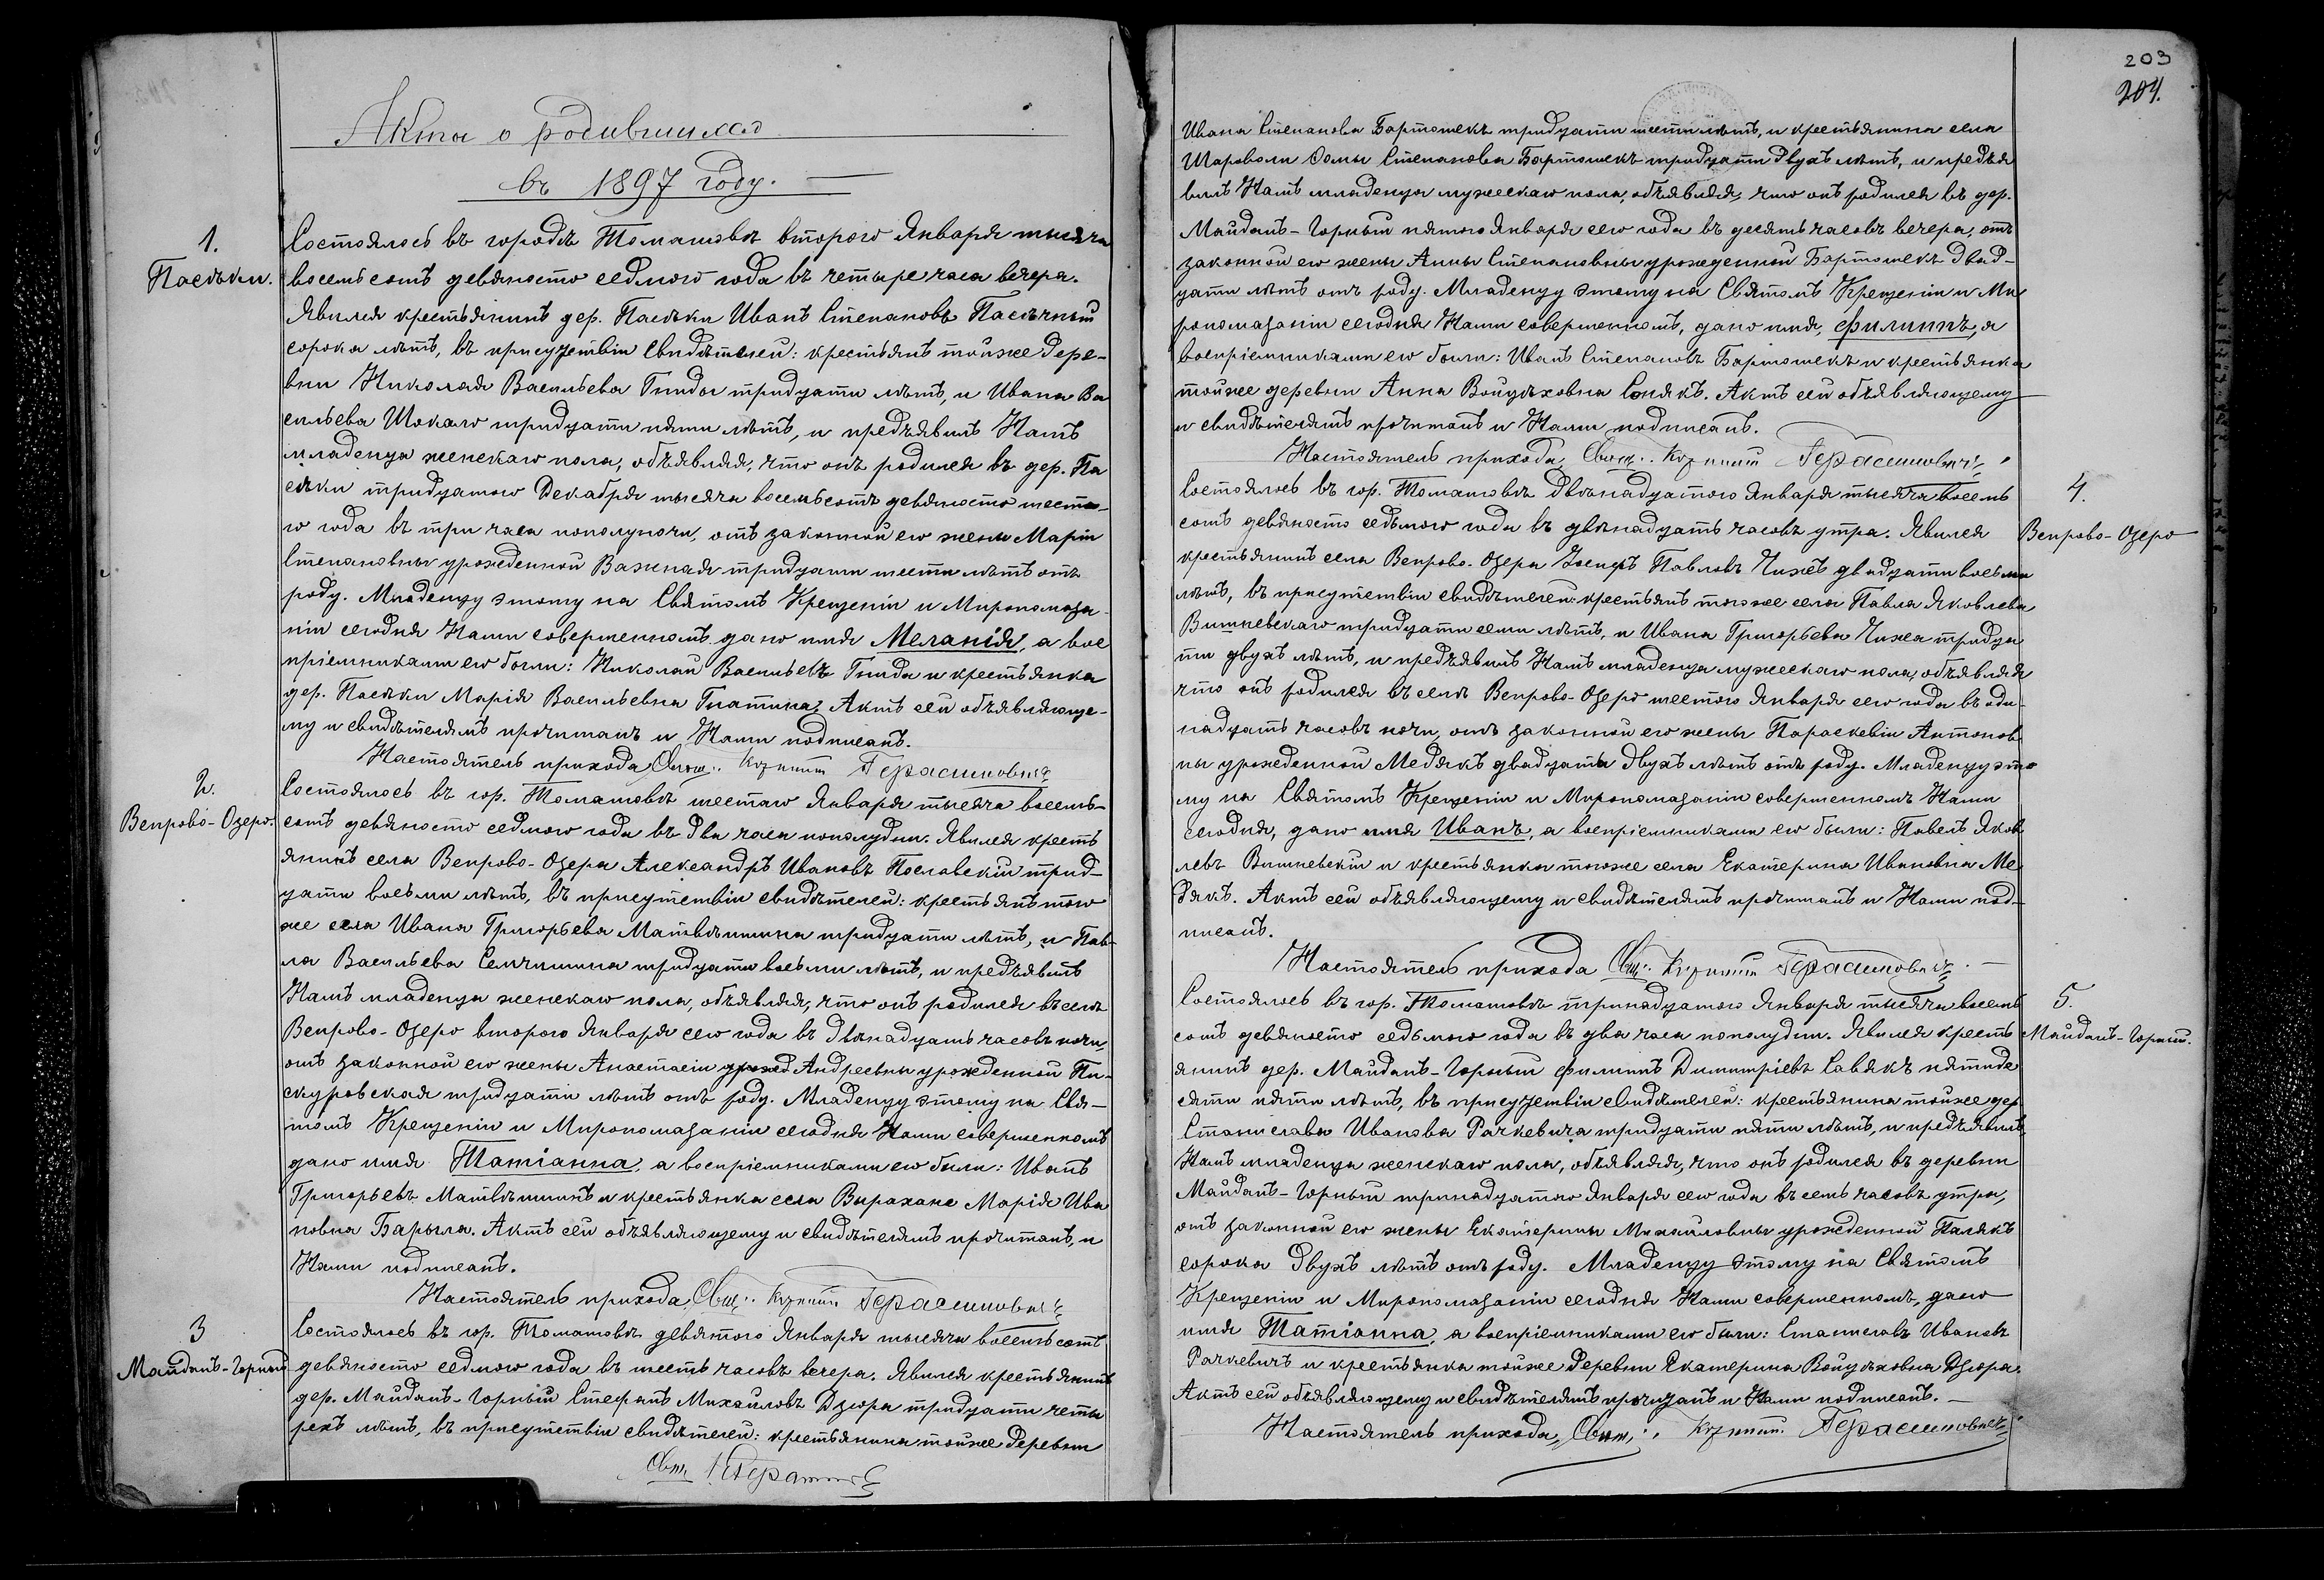 Акта о родившихся
въ 1897 году.
1.
Пасѣки.
Состоялось въ городѣ Томашовѣ второго Января тысяча
восемьсотъ девяносто седмого года въ четыре часа вечера.
Явился крестьянинъ дер. Пасѣки Иванъ Степановъ Пасѣчный
сорока лѣтъ, въ присутствіи свидѣтелей: крестьянъ тойже дере-
вни Николая Васильева Гниды тридцати лѣтъ, и Ивана Ва
сильева Шокало тридцати пяти лѣтъ, и предъявилъ Намъ
младенца женскаго пола, объявляя, что онъ родился въ дер. Па
сѣки тридцатого Декабря тысяча восемьсотъ девяносто шесто-
го года въ три часа пополуночи, отъ законной его жены Маріи
Степановны урожденной Важная тридцати шести лѣтъ отъ
роду. Младенцу этому на Святомъ Крещеніи и Миропомаза-
ніи сегодня Нами совершенномъ дано имя Меланія, а вос
пріемниками его были: Николай Васильевъ Гнида и крестьянка
дер. Пасѣки Марія Васильевна Гнатина, Актъ сей объявляюще-
му и свидѣтелямъ прочитанъ и Нами подписанъ.
Настоятель прихода, Свящ. Герасимовичъ
2.
Вепрово-Озеро.
Состоялось въ гор. Томашовѣ шестаго Января тысяча восемь-
сотъ девяносто седмого года въ два часа пополудни. Явился кресть
янинъ села Вепрово-Озера Александръ Ивановъ Пославскій трид-
цати восьми лѣтъ, въ присутствіи свидѣтелей: крестьянъ того
же села Ивана Григорьева Матвѣишина тридцати лѣтъ, и Пав-
ла Васильева Семчишина тридцати восьми лѣтъ, и предъявилъ
Намъ младенца женскаго пола, объявляя, что онъ родился въ селѣ
Вепрово-Озеро второго Января сего года въ двѣнадцать часовъ ночи,
отъ законной его жены Анастасіи урожед Андреевны урожденной Пи-
скуровская тридцати лѣтъ отъ роду. Младенцу этому на Свя-
томъ Крещеніи и Миропомазаніи сегодня Нами совершенномъ
дано имя Татіанна, а воспріемниками его были: Иванъ
Григорьевъ Матвѣишинъ и крестьянка села Вирахане Марія Ива
новна Барыла. Актъ сей объявляющему и свидѣтелямъ прочитанъ, и
Нами подписанъ.
Настоятель прихода, Свящ. Герасимовичъ
3
Майданъ-Горный
Состоялось въ гор. Томашовѣ девятого Января тысяча восемьсотъ
девяносто седмого года въ шесть часовъ вечера. Явился крестьянинъ
дер. Майданъ-Горный Стефанъ Михайловъ Дзюра тридцати четы
рехъ лѣтъ, въ присутствіи свидѣтелей: крестьянина тойже деревни
Свящ.
203
204.
Ивана Степанова Бартошекъ тридцати шести лѣтъ, и крестьянина села
Шароволи Фомы Степанова Бартошекъ тридцати двухъ лѣтъ, и предъя
вилъ Намъ младенца мужескаго пола, объявляя, что онъ родился въ дер.
Майданъ-Горный пятого Января сего года въ десять часовъ вечера, отъ
законной его жены Анны Степановны урожденной Бартошекъ двад-
цати лѣтъ отъ роду. Младенцу этому на Святомъ Крещеніи и Ми
ропомазаніи сегодня Нами совершенномъ, дано имя, Филиппъ, а
воспріемниками его были: Иванъ Степановъ Бартошекъ и крестьянка
тойже деревни Анна Войцѣховна Сонякъ. Актъ сей объявляющему
и свидѣтелямъ прочитанъ и Нами подписанъ.
Настоятель прихода, Свящ. Герасимовичъ
4.
Вепрово-Озеро
Состоялось въ гор. Томашовѣ двѣнадцатого Января тысяча восемь
сотъ девяносто седьмого года въ двѣнадцать часовъ утра. Явился
крестьянинъ села Вепрово-Озера Іосифъ Павловъ Чижъ двадцати восьми
лѣтъ, въ присутствіи свидѣтелей: крестьянъ тогоже села Павла Яковлева
Вишневскаго тридцати семи лѣтъ, и Ивана Григорьева Чижа тридца
ти двухъ лѣтъ, и предъявилъ Намъ младенца мужескаго пола, объявляя
что онъ родился въ селѣ Вепрово-Озеро шестого Января сего года въ оди-
надцать часовъ ночи, отъ законной его жены Параскевіи Антонов
ны урожденной Медякъ двадцати двухъ лѣтъ отъ роду. Младенцу это
му на Святомъ Крещеніи и Миропомазаніи совершенномъ Нами
сегодня, дано имя Иванъ, а воспріемниками его были: Павелъ Яков
левъ Вишневскій и крестьянка тогоже села Екатерина Ивановна Ме
дякъ. Актъ сей объявляющему и свидѣтелямъ прочитанъ и Нами под-
писанъ.
Настоятель прихода Свящ. Герасимовичъ.
5.
Майданъ-Горный.
Состоялось въ гор. Томашовѣ тринадцатого Января тысяча восемь
сотъ девяносто седьмого года въ два часа пополудни. Явился кресть
янинъ дер. Майданъ-Горный Филиппъ Димитріевъ Савякъ пятиде
сяти пяти лѣтъ, въ присутствіи свидѣтелей: крестьянина тойже дер.
Станислава Иванова Рачкевича тридцати пяти лѣтъ, и предъявилъ
Намъ младенца женскаго пола, объявляя, что онъ родился въ деревни
Майданъ-Горный тринадцатого Января сего года въ семь часовъ утра,
отъ законной его жены Екатерины Михайловны урожденной Палякъ
сорока двухъ лѣтъ отъ роду. Младенцу этому на Святомъ
Крещеніи и Миропомазаніи сегодня Нами совершенномъ, дано
имя Татіанна, а воспріемниками его были: Станиславъ Ивановъ
Рачкевичъ и крестьянка тойже деревни Екатерина Войцѣховна Дзюра.
Актъ сей объявляющему и свидѣтелямъ прочитанъ и Нами подписанъ.
Настоятель прихода, Свящ. Герасимовичъ